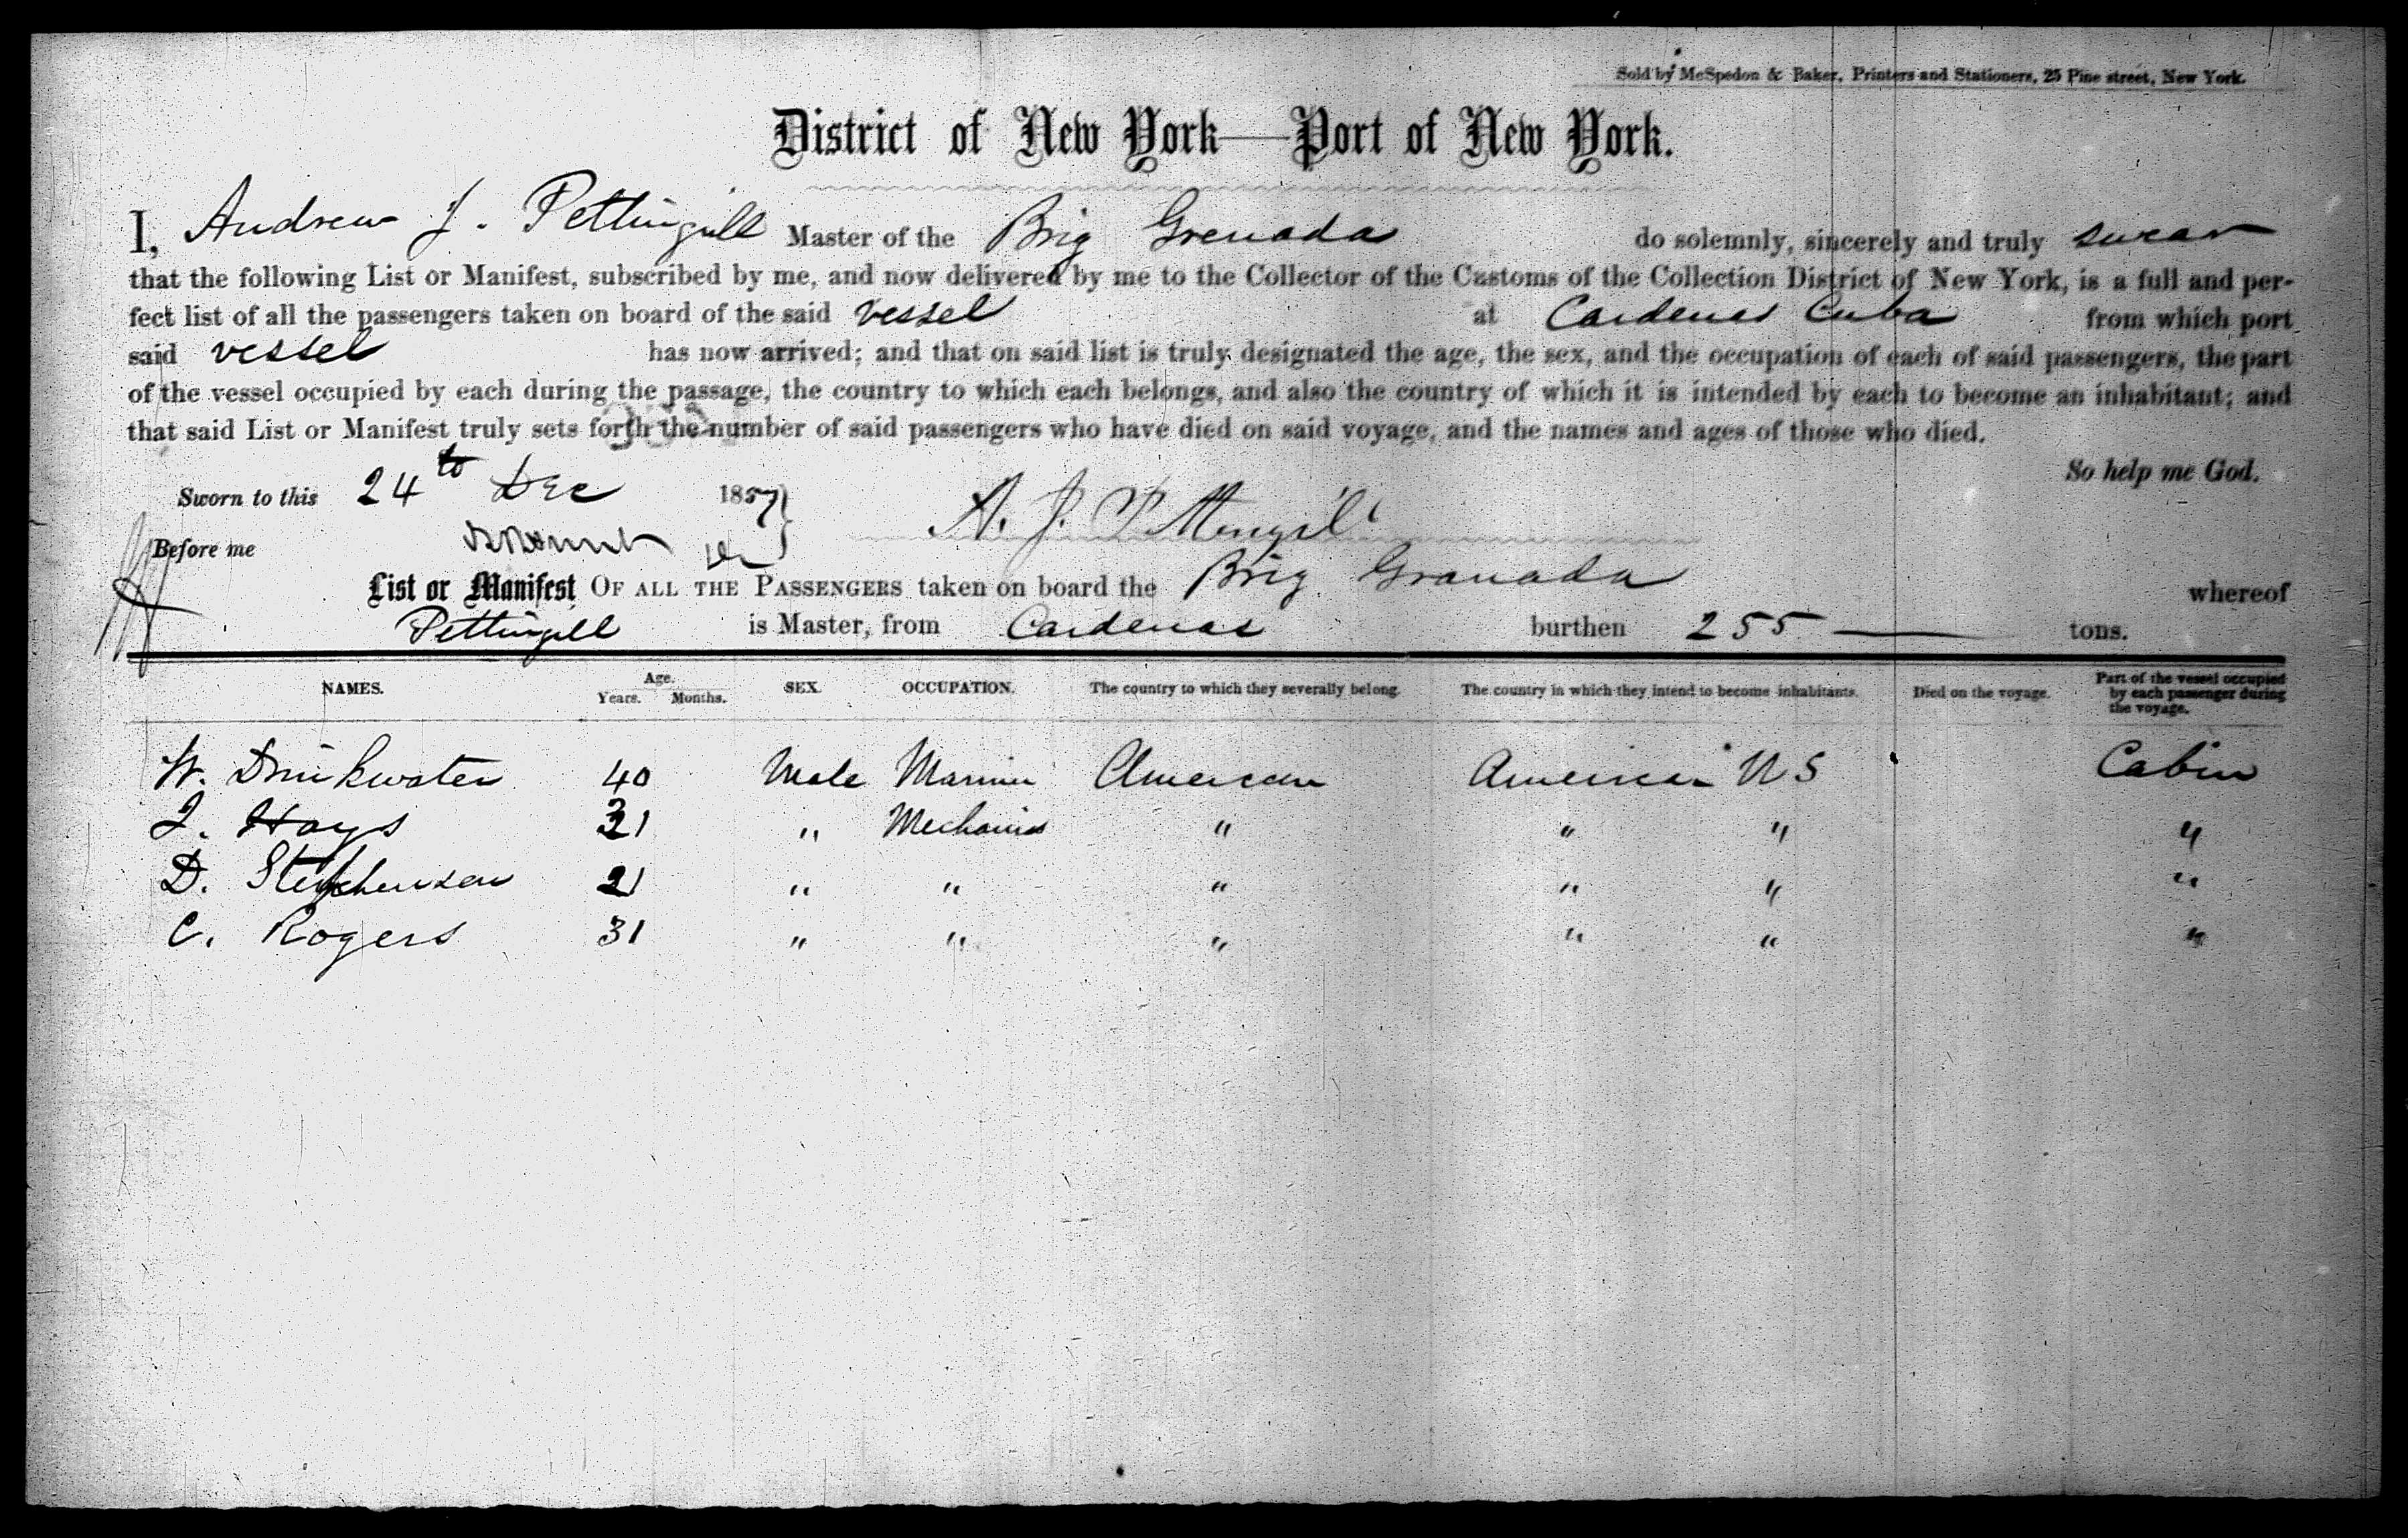 Sold by McSpedon & Baker, Printers and Stationers, 25 Pine street, New York.
District of New York—Port of New York.
I, Andrew J. Pettingill Master of the Brig Grenada do solemnly, sincerely and truly swear
that the following List or Manifest, subscribed by me, and now delivered by me to the Collector of the Customs of the Collection District of New York, is a full and per-
fect list of all the passengers taken on board of the said vessel at Cardenas Cuba from which port
said vessel has now arrived; and that on said list is truly designated the age, the sex, and the occupation of each of said passengers, the part
of the vessel occupied by each during the passage, the country to which each belongs, and also the country of which it is intended by each to become an inhabitant; and
that said List or Manifest truly sets forth the number of said passengers who have died on said voyage, and the names and ages of those who died.
So help me God.
Sworn to this 24th Dec 1857
A. J. Pettengill
Before me
List or Manifest OF ALL THE PASSENGERS taken on board the Brig Granada whereof
Pettingill is Master, from Cardenas burthen 255 — tons.
NAMES. Age. Years. Months. SEX. OCCUPATION. The country to which they severally belong. The country in which they intend to become inhabitants. Died on the voyage. Part of the vessel occupied by each passenger during the voyage.
W. Drinkwater 40 Male Mariner American American U S Cabin
J. Hays 31 " Mechanics " " " "
D. Stephenson 21 " " " " " "
C. Rogers 31 " " " " " "